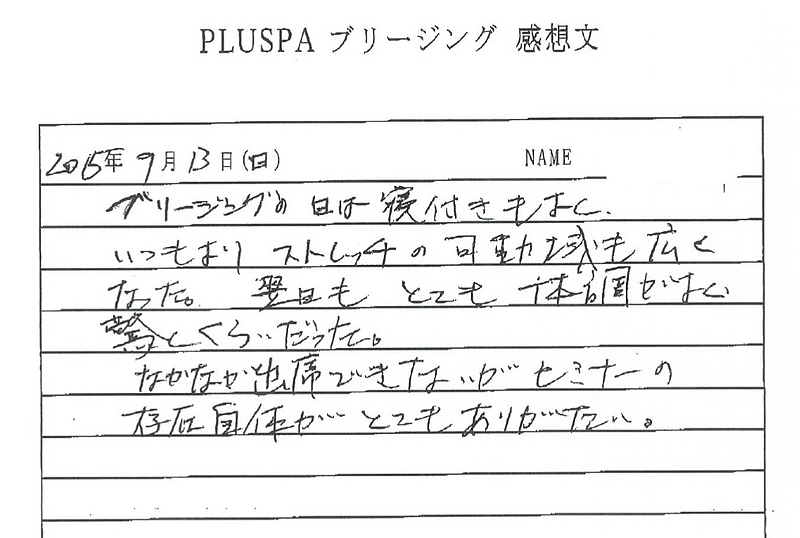 PLUSPA ブリージング 感想文
2015年 9月 13日(日) NAME
ブリージングの日は寝付きもよく、
いつもより ストレッチの可動域も広く
なった。 翌日も とても 体調がよく
驚くくらいだった。
なかなか出席できないが セミナーの
存在自体が とてもありがたい。